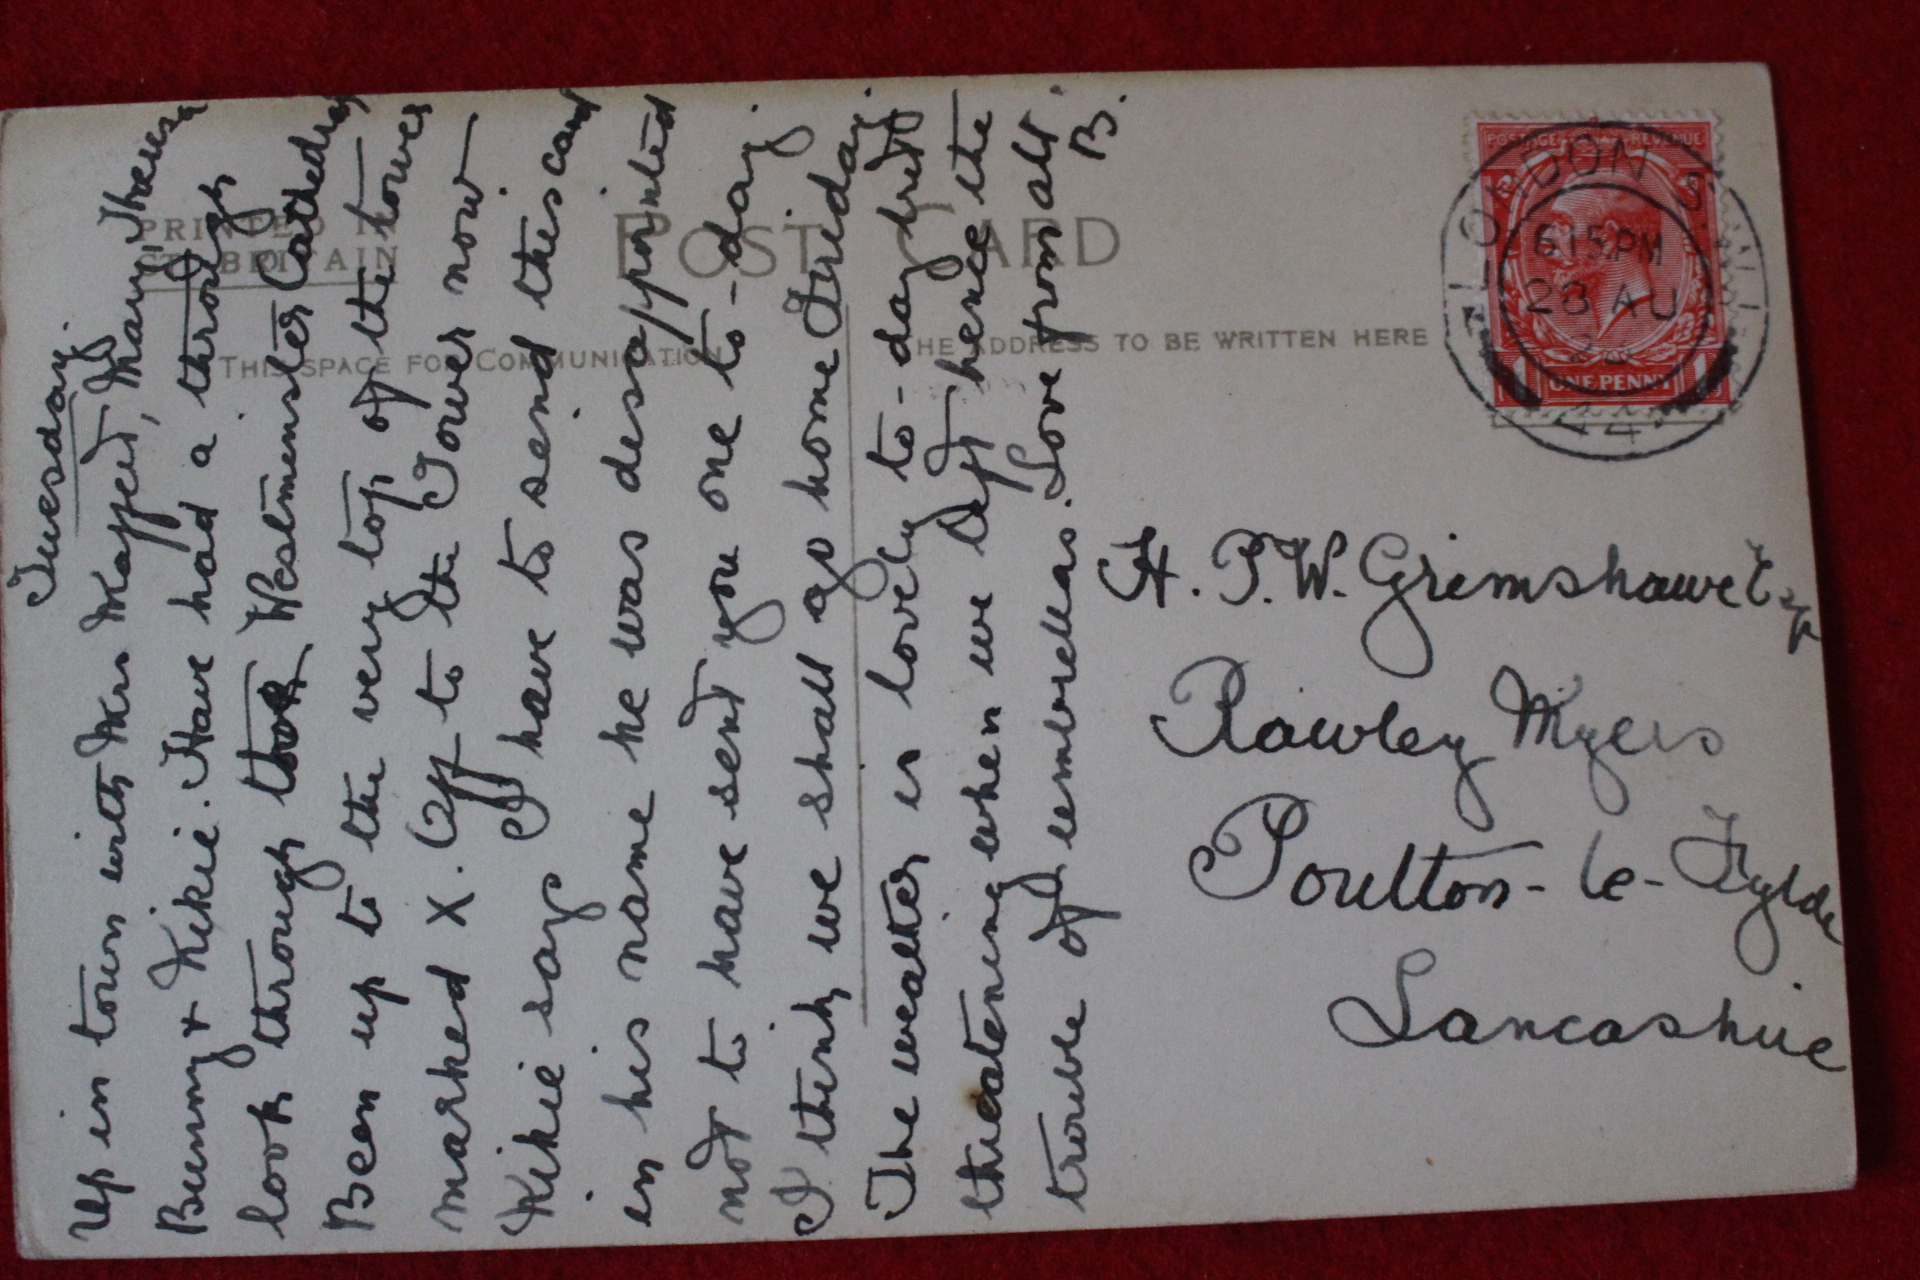 Tuesday.
Up in town with Mrs Mapped, Mary, Theresa
Bunny & Kikie. Have had a through
look through Westminster Cathedral
Been up to the very top of the tower
marked X. Off to the Tower now
Kikie says I have to send this card
in his name he was disappointed
not to have sent you one to-day
I think we shall go home Friday.
The weather is lovely to-day but
threatening when we left hence the
trouble of umbrellas. Love from all
B.
PRINTED IN
GT. BRITAIN
POST CARD
THIS SPACE FOR COMMUNICATION
THE ADDRESS TO BE WRITTEN HERE
POSTAGE REVENUE
ONE PENNY
LONDON S.W.1
6.15 PM
23 AU
44.
H. P. W. Grimshawe Esq
Rawley Myers
Poulton-le-Fylde
Lancashire